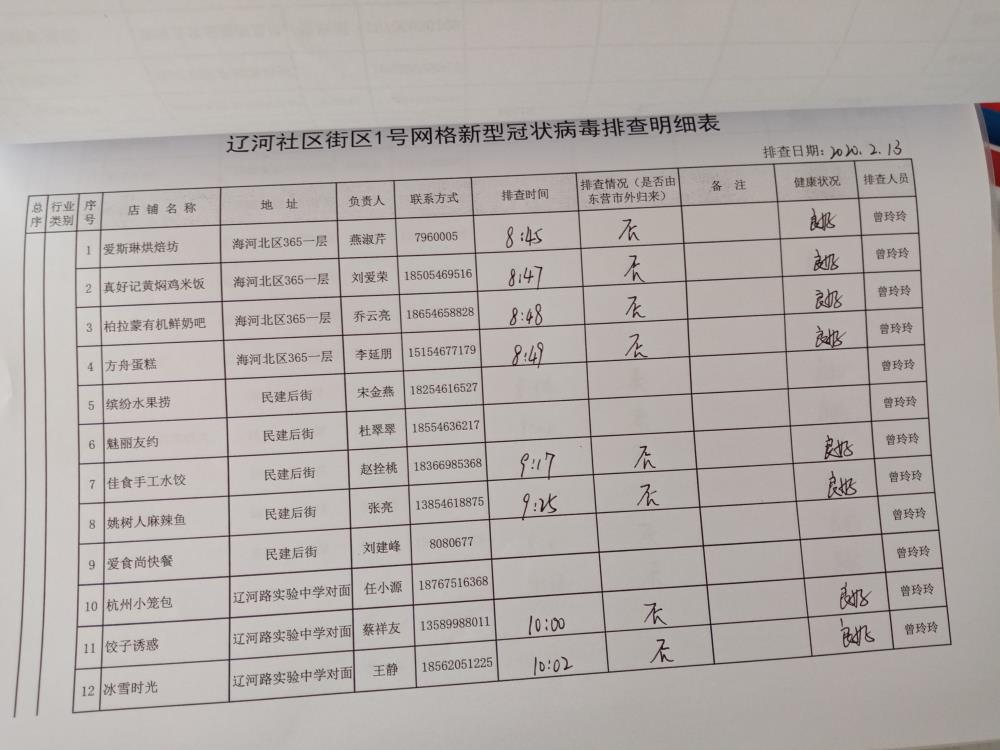 辽河社区街区1号网格新型冠状病毒排查明细表
排查日期：2020.2.13
总序 行业类别 序号 店铺名称 地址 负责人 联系方式 排查时间 排查情况（是否由东营市外归来） 备注 健康状况 排查人员
1 爱斯琳烘焙坊 海河北区365一层 燕淑芹 7960005 8:45 否 良好 曾玲玲
2 真好记黄焖鸡米饭 海河北区365一层 刘爱荣 18505469516 8:47 否 良好 曾玲玲
3 柏拉蒙有机鲜奶吧 海河北区365一层 乔云亮 18654658828 8:48 否 良好 曾玲玲
4 方舟蛋糕 海河北区365一层 李延朋 15154677179 8:49 否 良好 曾玲玲
5 缤纷水果捞 民建后街 宋金燕 18254616527 曾玲玲
6 魅丽友约 民建后街 杜翠翠 18554636217 曾玲玲
7 佳食手工水饺 民建后街 赵拴桃 18366985368 9:17 否 良好 曾玲玲
8 姚树人麻辣鱼 民建后街 张亮 13854618875 9:25 否 良好 曾玲玲
9 爱食尚快餐 民建后街 刘建峰 8080677 曾玲玲
10 杭州小笼包 辽河路实验中学对面 任小源 18767516368 曾玲玲
11 饺子诱惑 辽河路实验中学对面 蔡祥友 13589988011 10:00 否 良好 曾玲玲
12 冰雪时光 辽河路实验中学对面 王静 18562051225 10:02 否 良好 曾玲玲